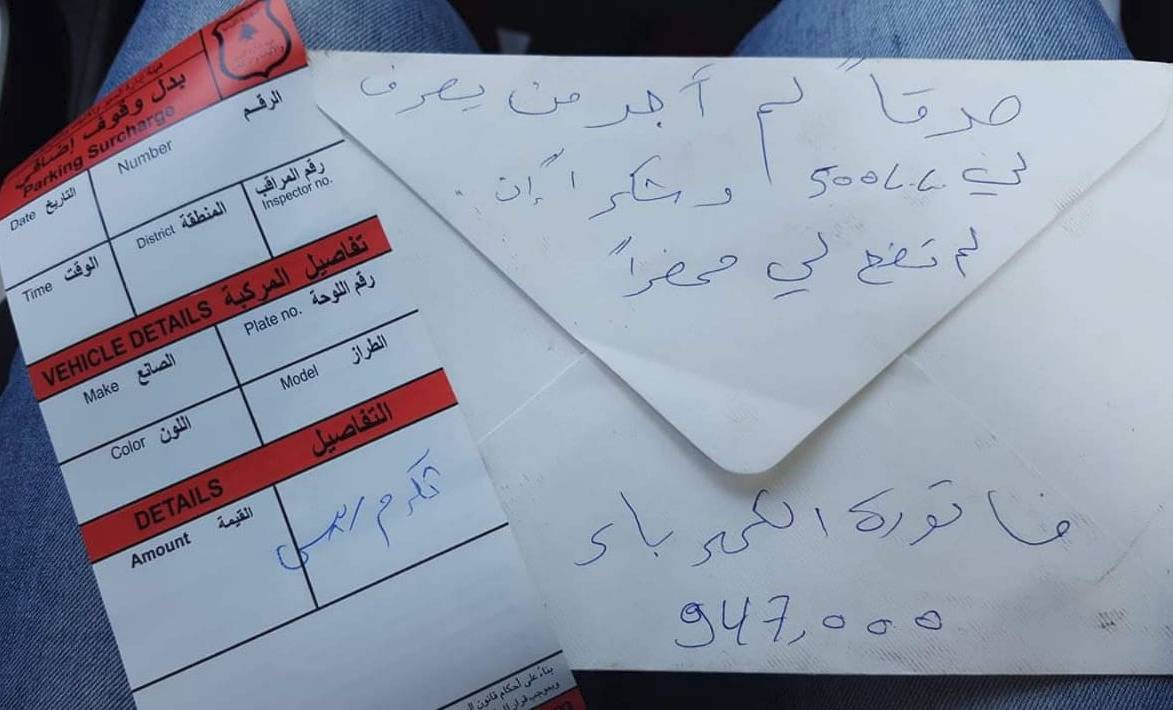 بدل وقوف إضافي
Parking Surcharge
Number الرقم
Date التاريخ
District المنطقة
رقم المراقب
Inspector no.
Time الوقت
VEHICLE DETAILS تفاصيل المركبة
Make الصانع
Plate no. رقم اللوحة
Color اللون
Model الطراز
DETAILS التفاصيل
Amount القيمة
تكرم ريس
بناءً على أحكام قانون
صدقاً لم أجد من يصرف
لي 500 L.L. و شكراً إن
لم تضع لي محضراً
فاتورة الكهرباء
947,000